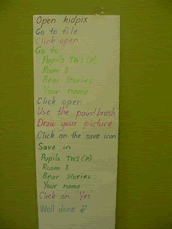 Open kidpix
Go to file
Click open
Go to
Pupils TWS (A)
Room 8
Bear Stories
Your name
Click open
Use the paintbrush
Draw your picture
Click on the save icon
Save in
Pupils TWS (A)
Room 8
Bear Stories
Your name
Click on 'Yes'
Well done